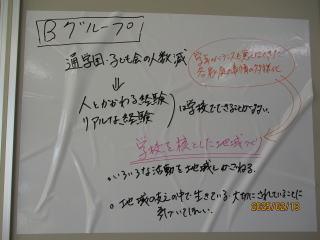 Bグループ
通学団・子ども会の人数減
⇓
人とかかわる経験
リアルな経験
は学校でできることが少ない。
学校を核とした地域づくり
・いろいろな活動を地域しかできる。
。地域の支えの中で生きている、大切にされていることに
気づいてほしい。
2025/02/13